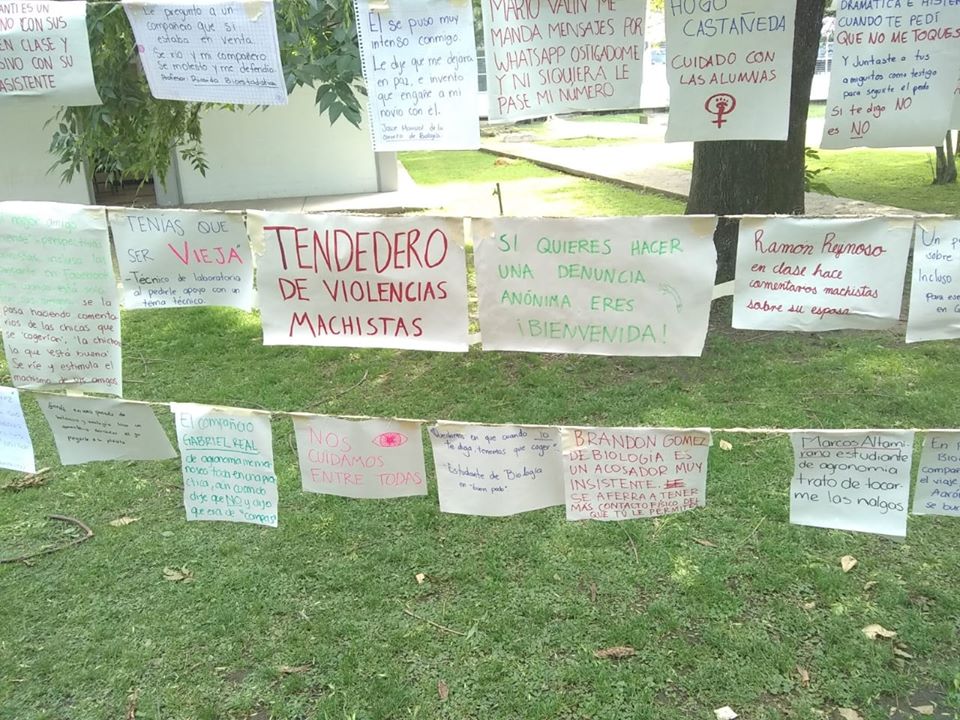 ANTI ES UN
CON SUS
EN CLASE Y
SIVO CON SU
ASISTENTE
Le pregunto a un
compañero que si
estaba en venta.
Se rió y mi compañero
Se molesto y me defendio
Profesor
El se puso muy
intenso conmigo.
Le dije que me dejara
en paz, e invento
que engañe a mi
novio con el.
de la
de Biología
MARIO VALIN ME
MANDA MENSAJES POR
WHATSAPP OSTIGADOME
Y NI SIQUIERA LE
PASE MI NUMERO
HUGO
CASTAÑEDA
CUIDADO CON
LAS ALUMNAS
DRAMATICA E
CUANDO TE PEDÍ
QUE NO ME TOQUES
Y Juntaste a tus
amiguitos como testigo
para seguirte el pedo
Si te digo NO
es NO
mejor amigo
perspectiva
incluso
en Facebook
se la
pasa haciendo comenta
rios de las chicas que
se "cogería", "la chichona",
la que "está buena".
Se ríe y estimula el
machismo de sus amigos
TENÍAS QUE
SER VIEJA"
- Técnico de laboratorio
al pedirle apoyo con un
tema técnico.
TENDEDERO
DE VIOLENCIAS
MACHISTAS
SI QUIERES HACER
UNA DENUNCIA
ANÓNIMA ERES
¡BIENVENIDA!
Ramon Reynoso
en clase hace
comentarios machistas
sobre su esposa
Un
sobre
Incluso
para
en
El compañero
GABRIEL REAL
de agronomía me
toda en una
práctica, aún cuando
dije que NO y dijo
que era de "compas"
NOS
CUIDAMOS
ENTRE TODAS
Quedamos en que cuando yo
te diga, tenemos que coger"
- Estudiante de Biología
en "buen pedo".
BRANDON GOMEZ
DE BIOLOGÍA ES
UN ACOSADOR MUY
INSISTENTE.
SE AFERRA A TENER
MÁS CONTACTO FÍSICO DEL
QUE TÚ LE PERMITES
Marcos Altami
rano estudiante
de agronomía
trato de tocar-
me las nalgas
En
compa
el viaje
Aarón
se bu